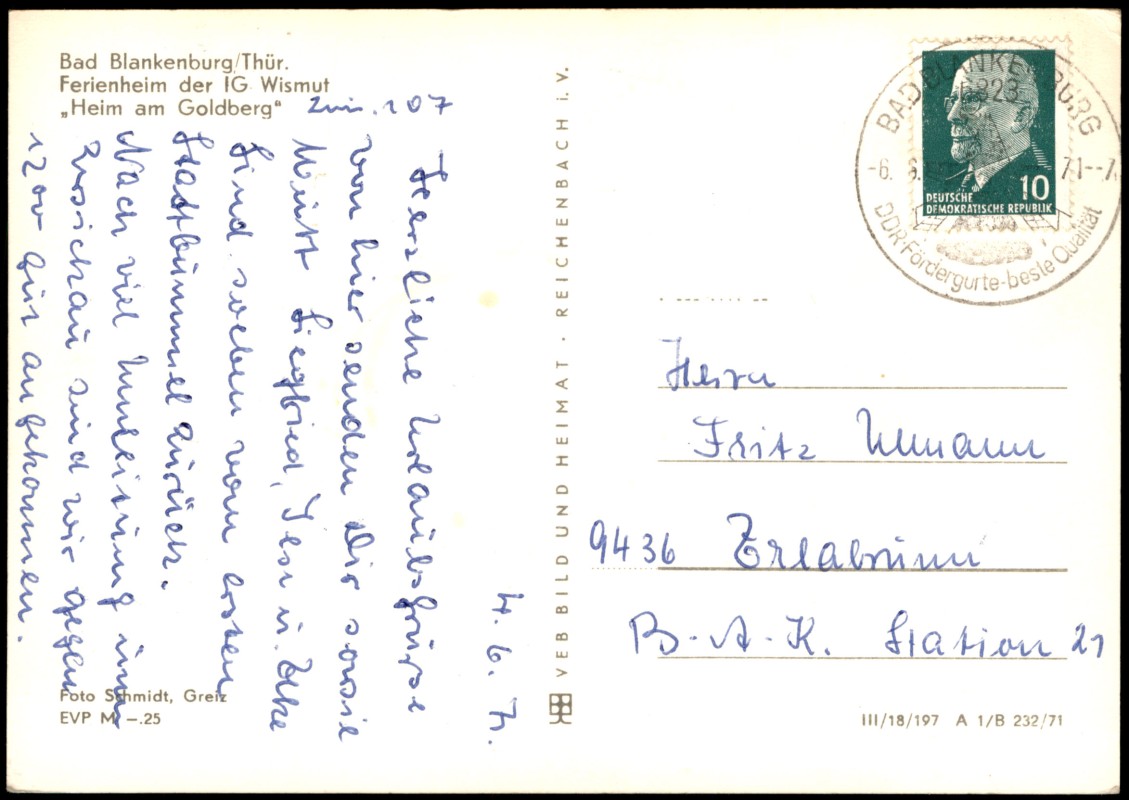 Bad Blankenburg/Thür.
Ferienheim der IG Wismut
„Heim am Goldberg"
Zim. 107
4. 6. 71.
Herzliche Urlaubsgrüsse
von hier senden Dir sowie
Siegfried, u.
sind soeben vom ersten
Stadtbummel zurück.
Nach viel
sind wir gegen
1200 Uhr angekommen.
Foto Schmidt, Greiz
EVP M –.25
VEB BILD UND HEIMAT · REICHENBACH i. V.
BAD BLANKENBURG
6823
-6. 6. 71--7
DDR-Fördergurte-beste Qualität
10
DEUTSCHE
DEMOKRATISCHE REPUBLIK
Herrn
Fritz Ullmann
9436 Erlabrunn
B.-A.-K. Station 21
III/18/197 A 1/B 232/71